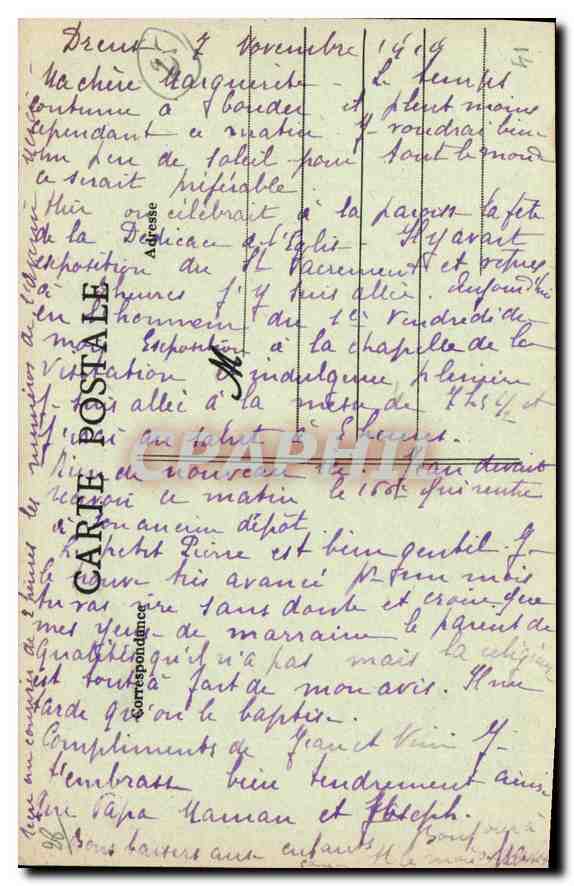 Dreux 7 Novembre 1919
Ma chère Marguerite - Le temps
continue à bouder et pleut moins
cependant ce matin J voudrai bien
un peu de soleil pour tout le monde
ce serait préférable.
Hier on célébrait à la paroisse la fête
de la Dédicace de l'Eglise - Il y avait
exposition du St Sacrement et vêpres
à heures j'y suis allée. Aujourd'hui
en l'honneur du 1er Vendredi du
mois Exposition à la chapelle de la
Visitation indulgence plénière
suis allée à la messe de 7 h 1/2 et
au salut à 5 heures.
Rien de nouveau Jean devait
recevoir ce matin le 166e qui rentre
à son ancien dépôt
Le petit Pierre est bien gentil J
le trouve très avancé pr un mois
tu vas rire sans doute et croire que
mes yeux de marraine le parent de
qualités qu'il n'a pas mais la religieuse
est tout à fait de mon avis. Il me
tarde qu'on le baptise.
Compliments de Jean et Nini J
t'embrasse bien tendrement ainsi
que Papa Maman et Joseph.
Bons baisers aux enfants Bonjour à
M le
au courrier de 2 heures les numéros de
CARTE POSTALE
Correspondance
Adresse
M
CPAPHIL
2
41
28